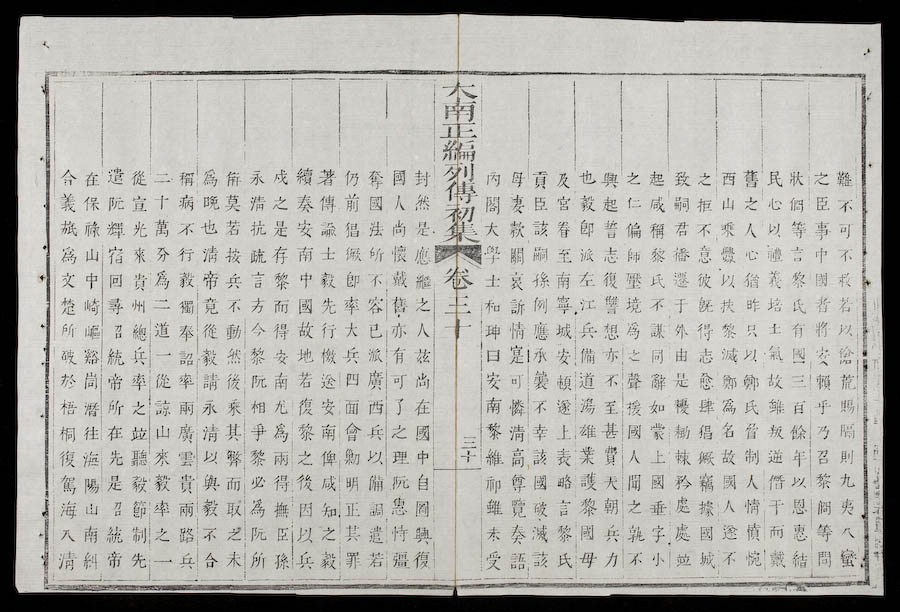 難不可不救若以愴荒賜隔則九夷八蠻
之臣事中國者將安賴乎乃召黎僩等問
狀僩等言黎氏有國三百餘年以恩惠結
民心以禮義培士氣故雖叛逆僭干而戴
舊之人心猶昨只以鄭氏脅制人情憤惋
西山乘釁以扶黎滅鄭為名故國人遂不
之拒不意彼旣得志愈肆猖獗竊據國城
致嗣君播遷于外由是耰耡棘矜處處並
起咸稱黎氏不謀同辭如蒙上國垂字小
之仁偏師壓境為之聲援國人聞之孰不
興起誓志復讐想亦不至甚費天朝兵力
也毅卽派左江兵備道湯雄業護黎國母
及宮眷至南寧城安頓遂上表略言黎氏
貢臣該嗣孫例應承襲不幸該國破滅該
母妻欵關哀訴情寔可憐清高尊覽奏語
內閣大學士和珅曰安南黎維祁雖未受
大南正編列傳初集 卷三十 三十
封然是應繼之人茲尚在國中自圖興復
國人尚懷戴舊亦有可了之理阮惠恃彊
奪國法所不容已派廣西兵以備調遣若
仍前猖獗卽率大兵四面會勦明正其罪
著傳諭士毅先行檄透安南俾咸知之毅
續奏安南中國故地若復黎之後因以兵
戍之是存黎而得安南尤為兩得撫臣孫
永清抗疏言方今黎阮相爭黎必為阮所
倂莫若按兵不動然後乘其弊而取之未
為晚也清帝竟從毅請永清以與毅不合
稱病不行毅獨奉詔率兩廣雲貴兩路兵
二十萬分為二道一從諒山來毅率之一
從宣光來貴州總兵率之並聽毅節制先
遣阮輝宿回尋召統帝所在先是召統帝
在保祿山中崎嶇谿峝潛往海陽山南糾
合義旅為文楚所破於梧桐復駕海入清